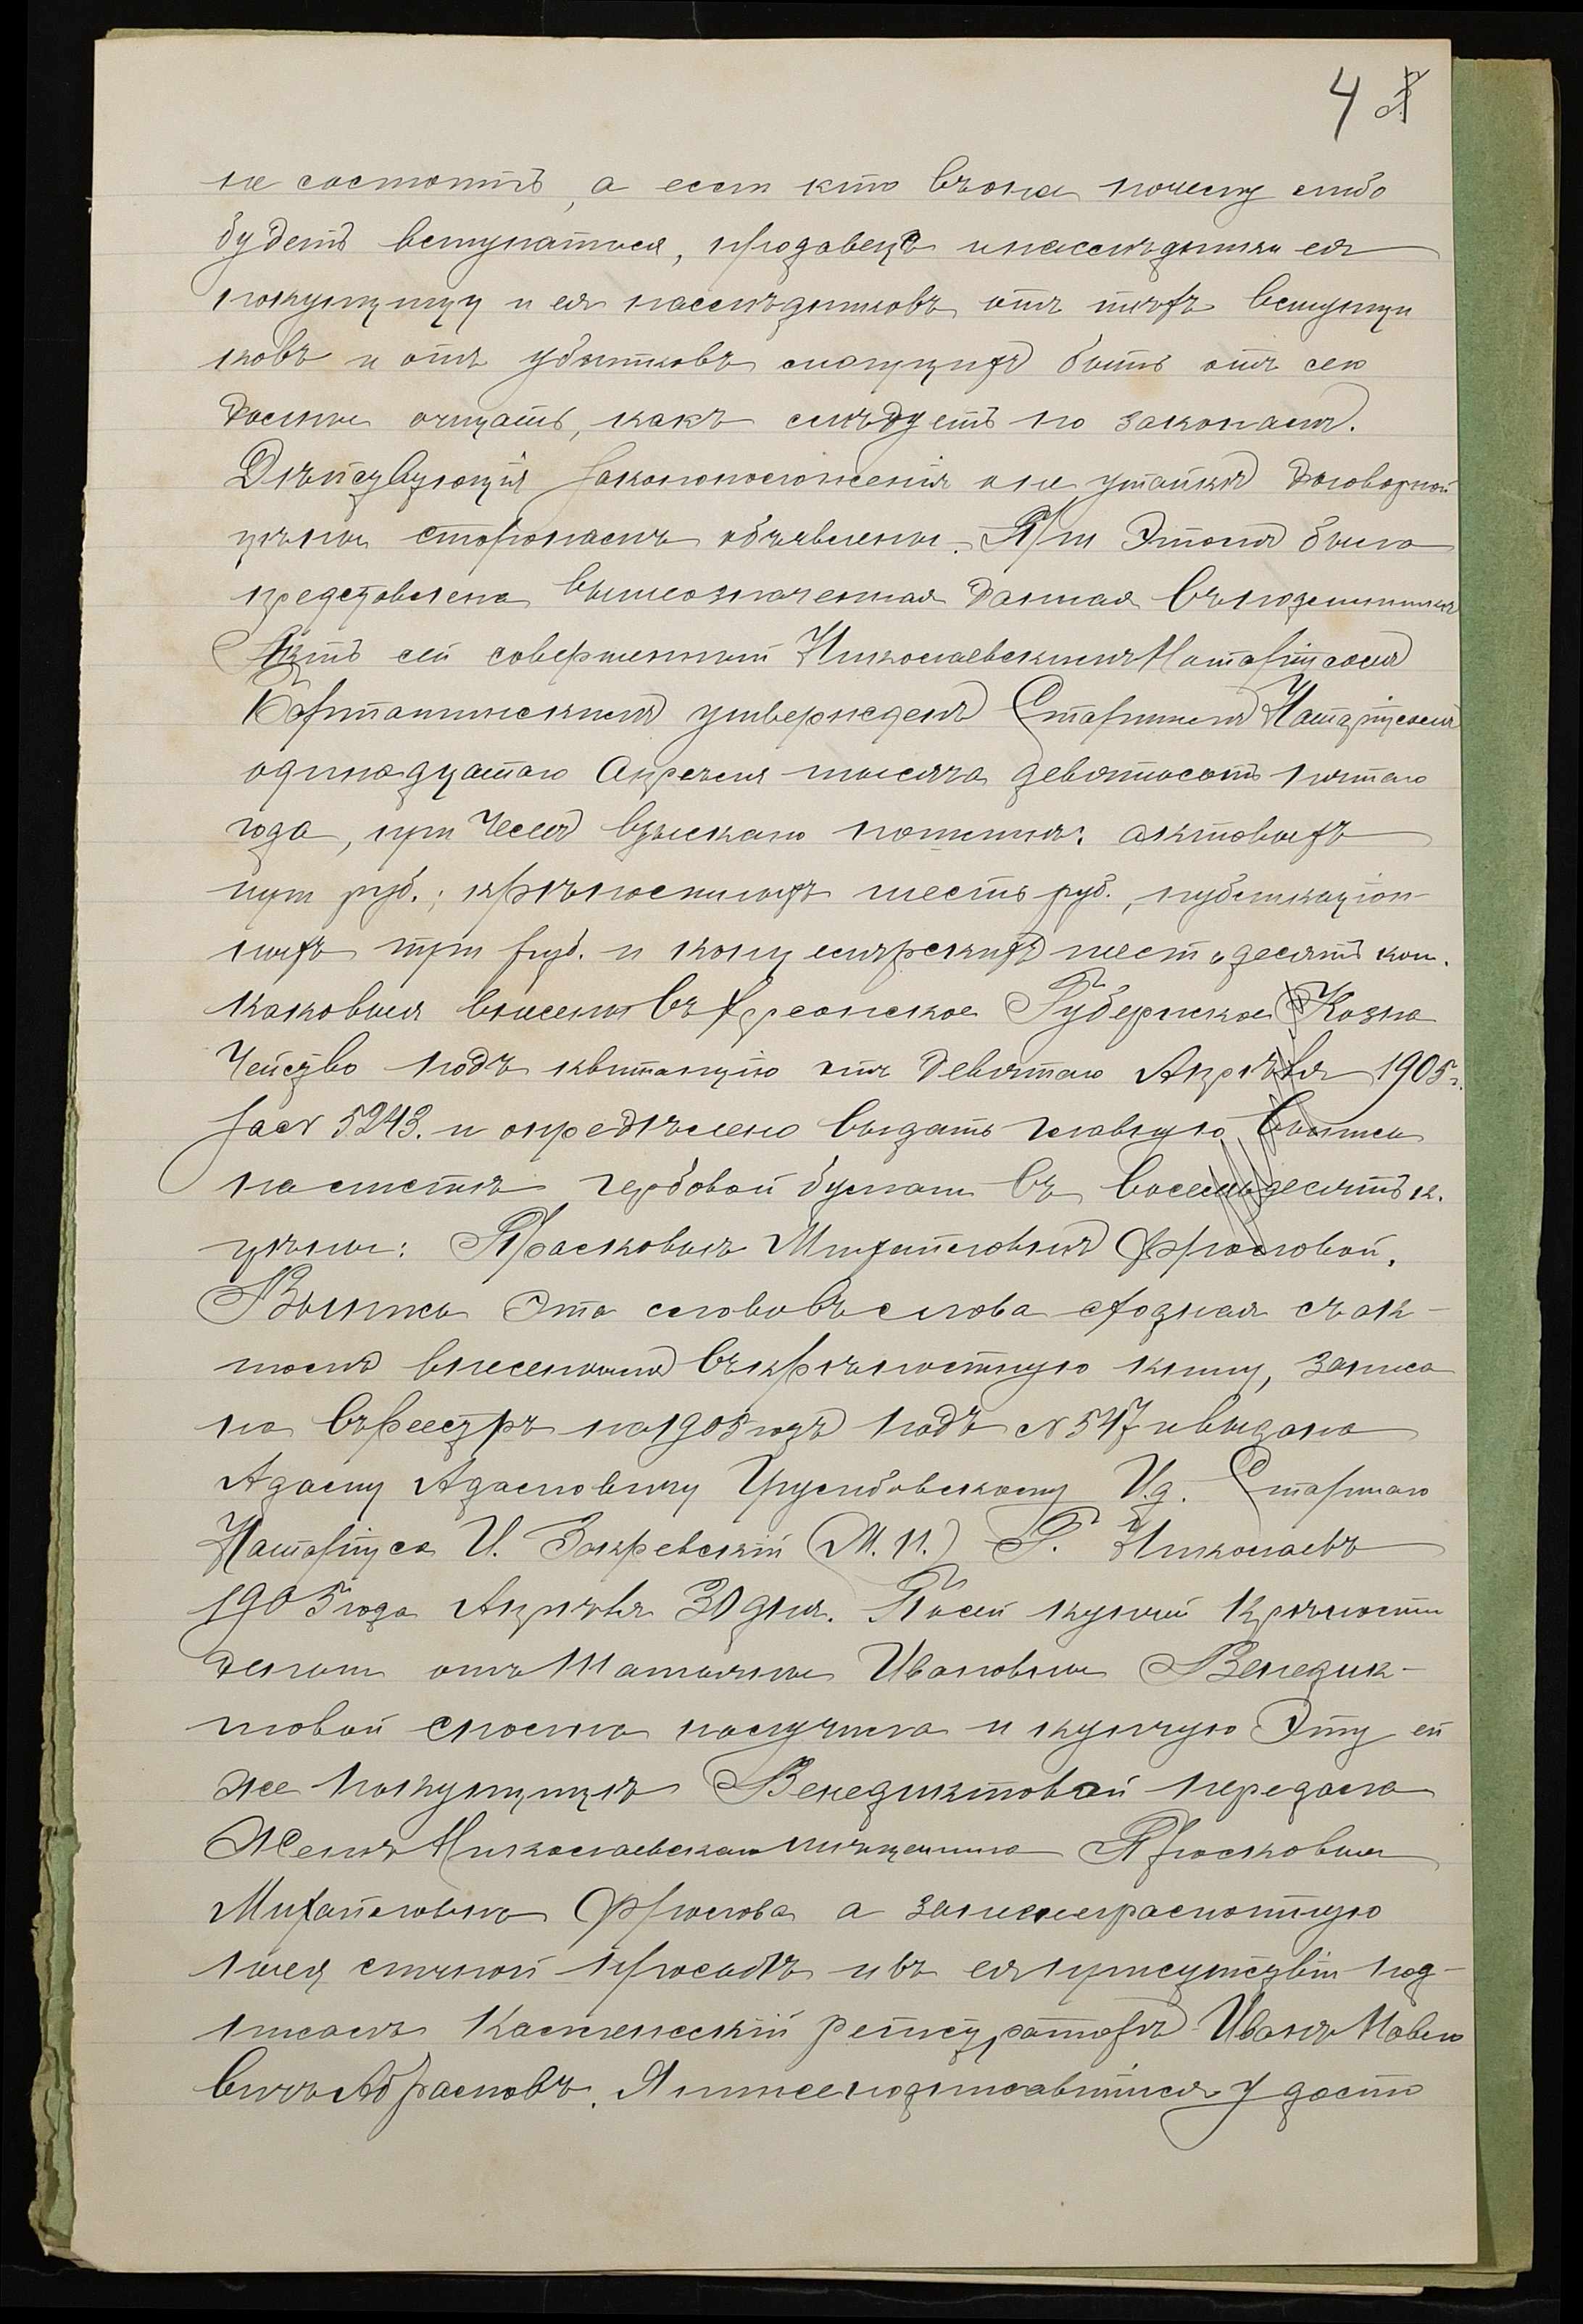 4
не состоитъ, а если кто въ оное почему либо
будетъ вступаться, продавецъ и наслѣдники ея
покупщицу и ея наслѣдниковъ отъ тѣхъ вступщи
ковъ и отъ убытковъ могущихъ быть отъ сего
должны очищать, какъ слѣдуетъ по законамъ.
Дѣйствующія законоположенія о не утайкѣ договорной
цѣны сторонамъ объявлены. При этомъ была
представлена вышеозначенная данная въ подлинникѣ
Актъ сей совершенный Николаевскимъ Нотаріусомъ
утвержденъ Старшимъ Нотаріусомъ
одинадцатаго Апрѣля тысяча девятьсотъ пятаго
года, при чемъ взыскано пошлинъ: актовыхъ
три руб.; крѣпостныхъ шесть руб., публикаціон-
ныхъ три руб. и канцелярскихъ шестьдесятъ коп.
каковыя внесены въ Херсонское Губернское Казна
чейство подъ квитанцію отъ девятаго Апрѣля 1905 г.
за № 5243. и опредѣлено выдать главную выпись
на листѣ гербовой бумаги въ восемьдесятъ к.
цѣны: Прасковьѣ Михайловнѣ Фроловой.
Выпись эта слово въ слово сходная съ ак-
томъ внесеннымъ въ крѣпостную книгу, записа
на въ реестръ на 1905 годъ подъ № 547 и выдана
Адаму Адамовичу И.д. Старшаго
Нотаріуса И. Закревскій (М. П.) Г. Николаевъ
1905 года Апрѣля 30 дня. По сей купчей крѣпости
деньги отъ Татьяны Ивановны Венедик-
товой сполна получила и купчую эту ей
же покупщицѣ Венедиктовой передала
Жена Николаевскаго мѣщанина Прасковья
Михайловна Фролова а за нее неграмотную
по ея личной просьбѣ и въ ея присутствіи под-
писалъ Коллежскій регистраторъ Иванъ Павло
вичъ Абрамовъ. Я нижеподписавшійся удосто